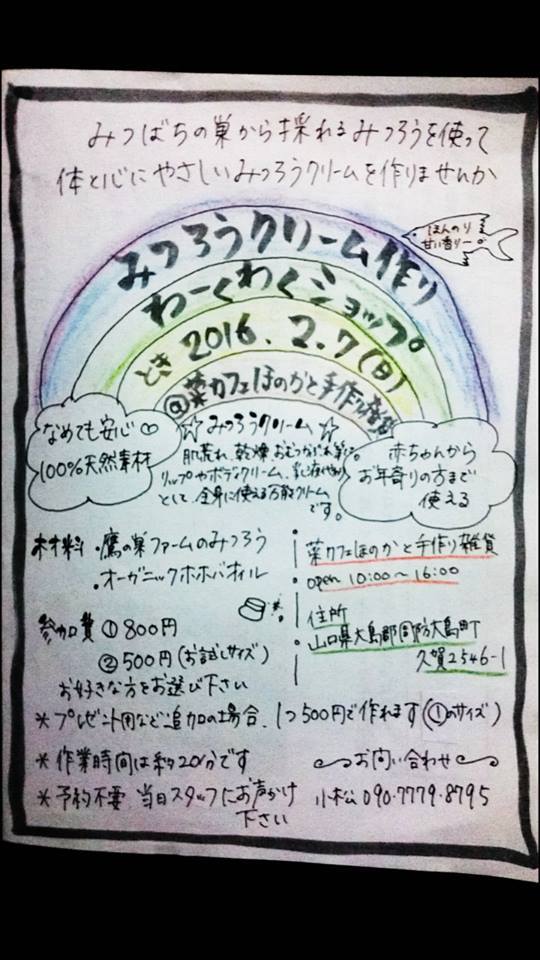 みつばちの巣から採れるみつろうを使って
体と心にやさしいみつろうクリームを作りませんか
ほんのり
甘い香り
みつろうクリーム作り
わーくわくショップ
とき 2016.2.7(日)
@菜カフェほのかと手作り雑貨
なめても安心♡
100%天然素材
☆みつろうクリーム☆
肌荒れ、乾燥、おむつかぶれ等に。
リップやボディクリーム、乳液代わり
として、全身に使える万能クリーム
です。
赤ちゃんから
お年寄りの方まで
使える
材料 ・鷹の巣ファームのみつろう
・オーガニックホホバオイル
参加費 ①800円
②500円(お試しサイズ)
お好きな方をお選び下さい
菜カフェほのかと手作り雑貨
open 10:00〜16:00
住所
山口県大島郡周防大島町
久賀2546-1
*プレゼント用など追加の場合、1つ500円で作れます(①のサイズ)
*作業時間は約20分です
*予約不要 当日スタッフにお声かけ
下さい
お問い合わせ
小松 090-7779-8795